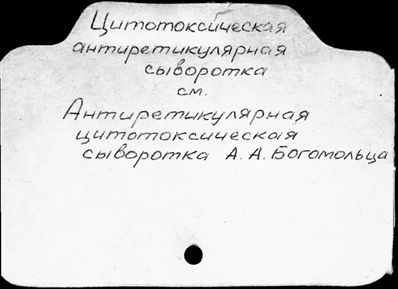 Цитотоксическая
антиретикулярная
сыворотка
см.
Антиретикулярная
цитотоксическая
сыворотка А. А. Богомольца